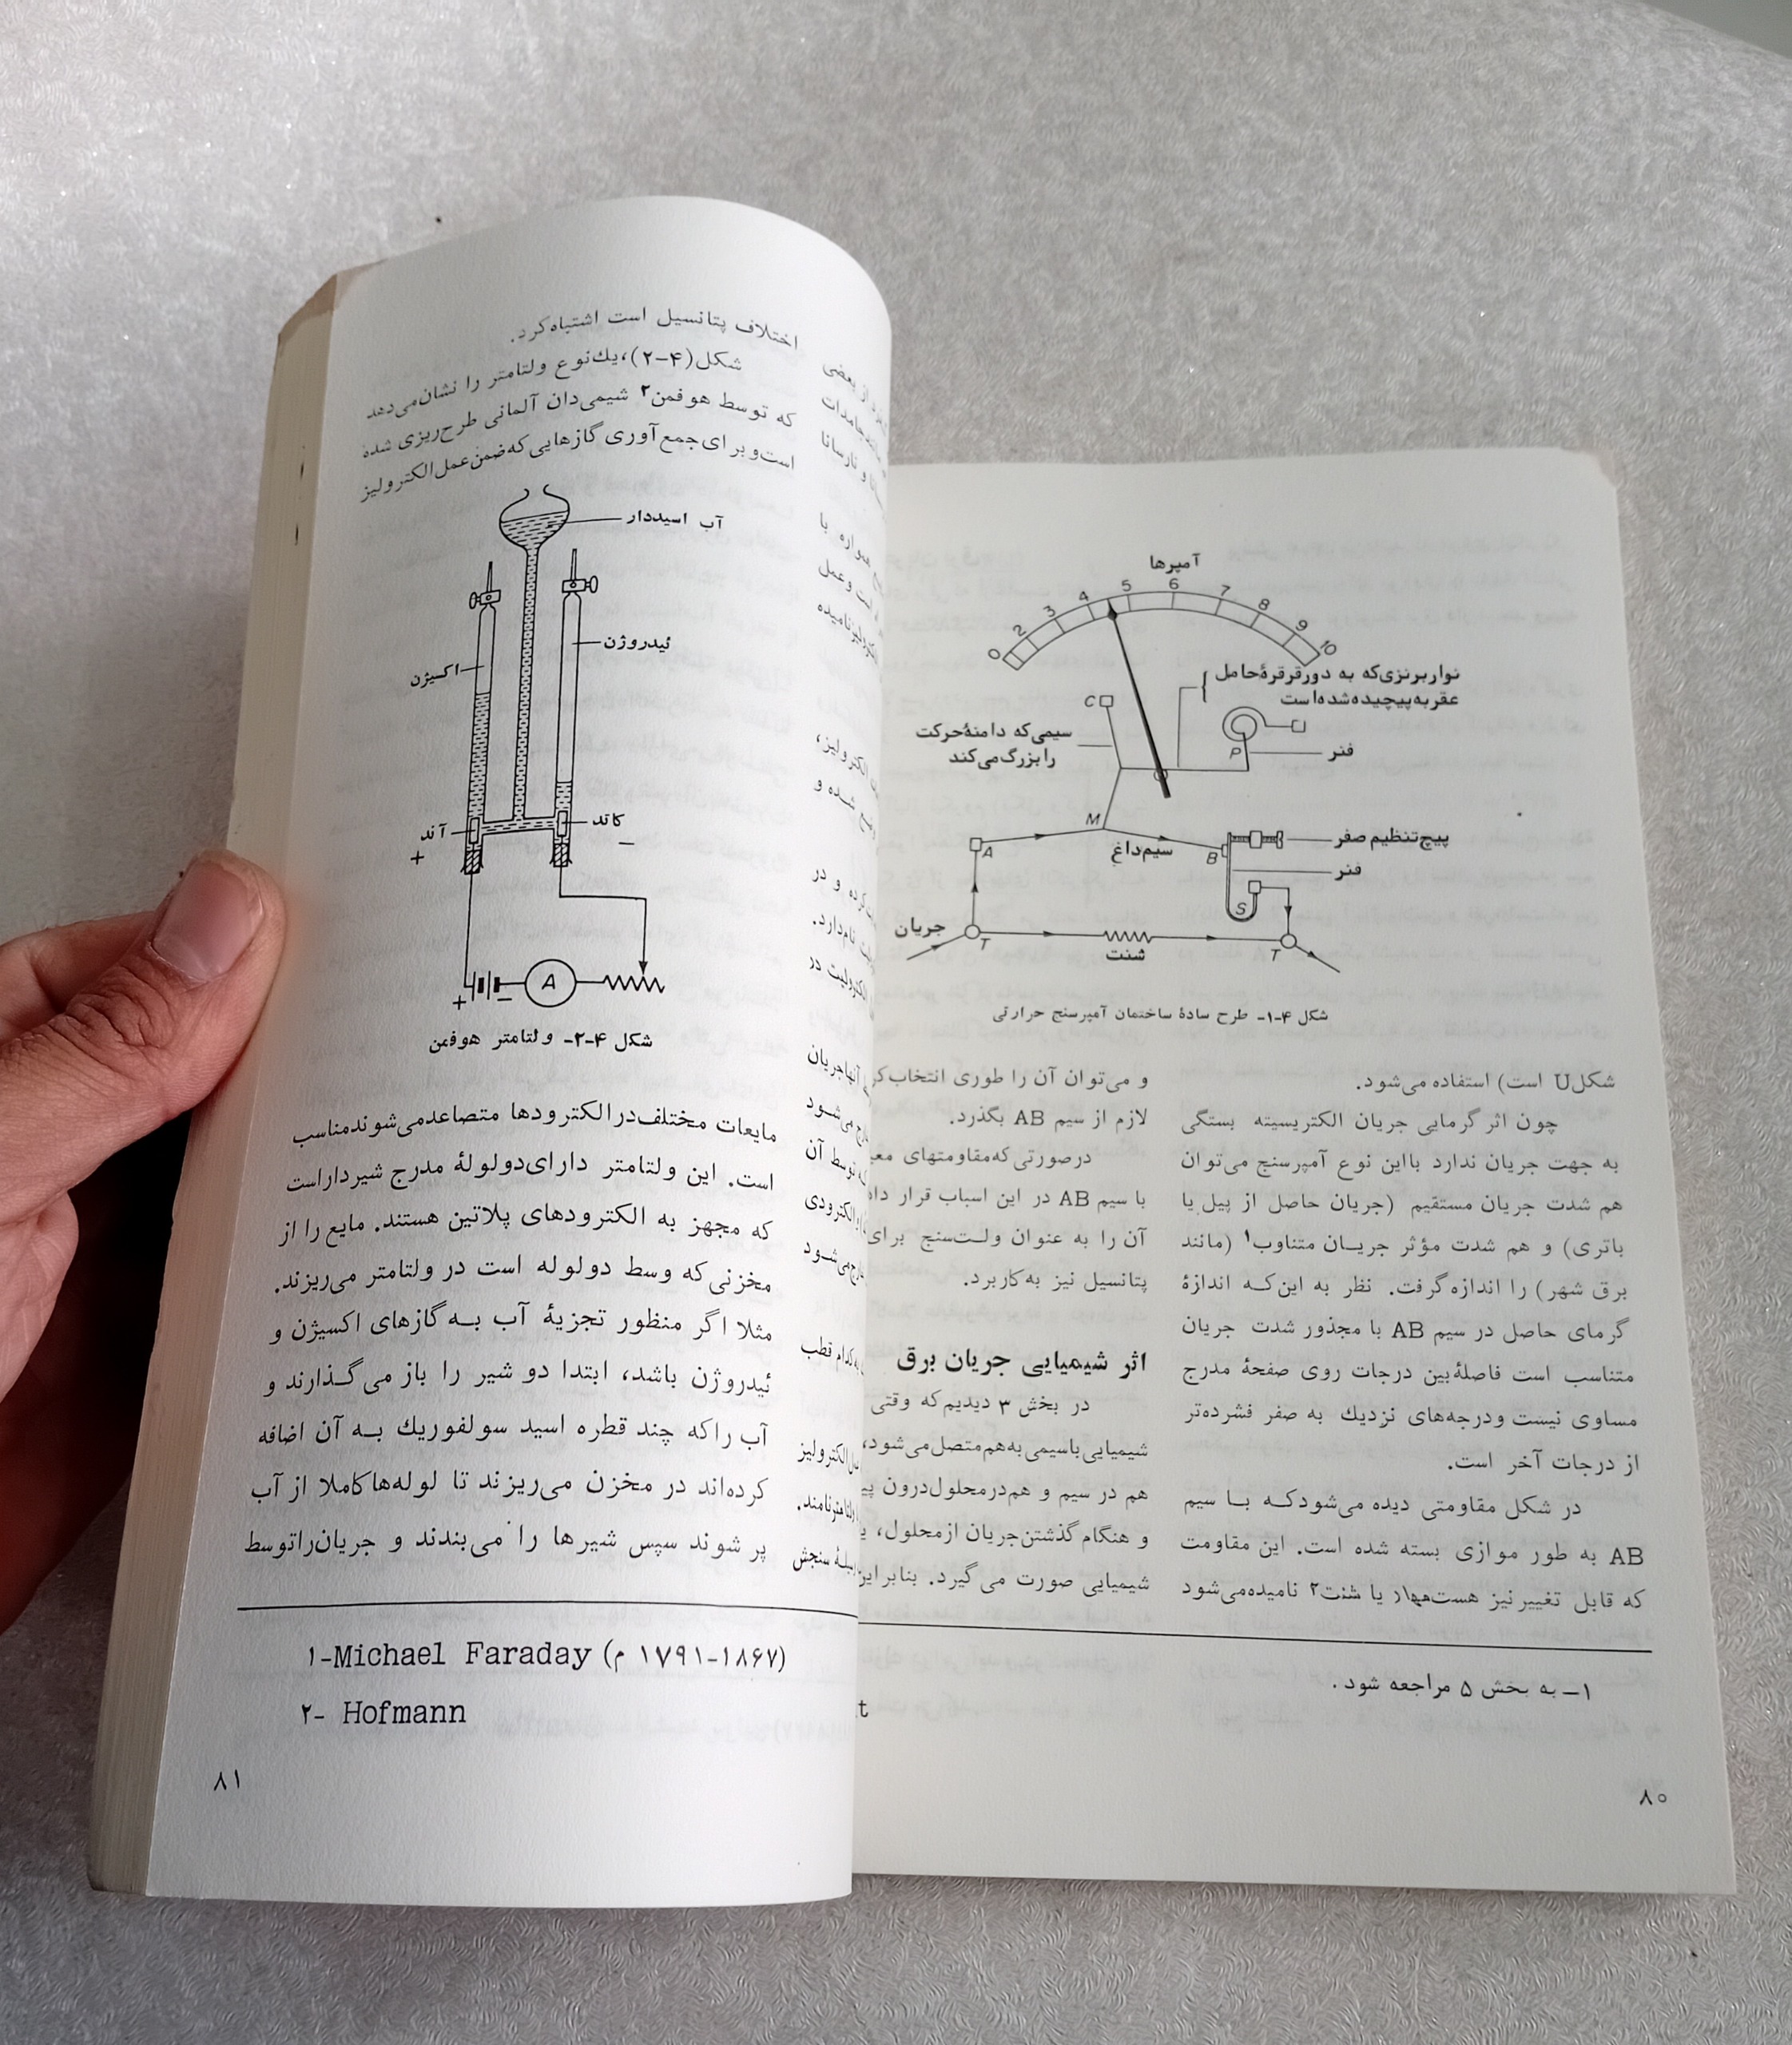 آمپرها
0 2 3 4 5 6 7 8 9 10
نوار برنزی‌که به دور قرقرهٔ حامل
عقربه پیچیده شده است
C
سیمی‌که دامنهٔ حرکت
را بزرگ می‌کند
P
فنر
M
A
سیم داغ
B
پیچ تنظیم صفر
فنر
S
جریان
T
شنت
T
شکل ۴-۱- طرح سادهٔ ساختمان آمپرسنج حرارتی
شکل U است) استفاده می‌شود.
چون اثر گرمایی جریان الکتریسیته بستگی
به جهت جریان ندارد با این نوع آمپرسنج می‌توان
هم شدت جریان مستقیم (جریان حاصل از پیل یا
باتری) و هم شدت مؤثر جریـان متناوب۱ (مانند
برق شهر) را اندازه گرفت. نظر به این‌کـه اندازهٔ
گرمای حاصل در سیم AB با مجذور شدت جریان
متناسب است فاصلهٔ بین درجات روی صفحهٔ مدرج
مساوی نیست و درجه‌های نزدیك به صفر فشرده‌تر
از درجات آخر است.
در شکل مقاومتی دیده می‌شود کـه بـا سیم
AB به طور موازی بسته شده است. این مقاومت
که قابل تغییر نیز هست یا شنت۲ نامیده می‌شود
و می‌توان آن را طوری
لازم از سیم AB بگذرد.
درصورتی‌که مقاومتهای
با سیم AB در این اسباب قرار
آن را به عنوان ولـت‌سنج برای
پتانسیل نیز به‌کار برد.
اثر شیمیایی جریان برق
در بخش ۳ دیدیم که وقتی
شیمیایی با سیمی به هم متصل می‌شود،
هم در سیم و هم در محلول درون
و هنگام گذشتن جریان از محلول،
شیمیایی صورت می گیرد. بنابراین
۱- به بخش ۵ مراجعه شود.
۸۰
از بعضی
جامدات
و نارسانا
همواره با
است و عمل
نامیده
الکترولیز،
شده و
کرده و در
نام دارد.
الکترولیت در
آنها جریان
می‌شـود
توسط آن
الکترودی
می‌شـود
کدام قطب
الکترولیز
نامند.
سنجش
اختلاف پتانسیل است اشتباه کرد.
شکل (۴-۲)، یك نوع ولتامتر را نشان می‌دهد
که توسط هوفمن۲ شیمی‌دان آلمانی طرح‌ریزی شده
است و برای جمع آوری گازهایی که ضمن عمل الکترولیز
آب اسیددار
ئیدروژن
اکسیژن
آند
کاتد
+
−
A
+
−
شکل ۴-۲- ولتامتر هوفمن
مایعات مختلف در الکترودها متصاعد می‌شوند مناسب
است. این ولتامتر دارای دو لولهٔ مدرج شیردار است
که مجهز به الکترودهای پلاتین هستند. مایع را از
مخزنی که وسط دو لوله است در ولتامتر می‌ریزند.
مثلا اگر منظور تجزیهٔ آب بـه گازهای اکسیژن و
ئیدروژن باشد، ابتدا دو شیر را باز می گـذارند و
آب را که چند قطره اسید سولفوریك بـه آن اضافه
کرده‌اند در مخزن می‌ریزند تا لوله‌ها کاملا از آب
پر شوند سپس شیرها را می‌بندند و جریان را توسط
۱-Michael Faraday (۱۷۹۱-۱۸۶۷ م)
۲- Hofmann
۸۱